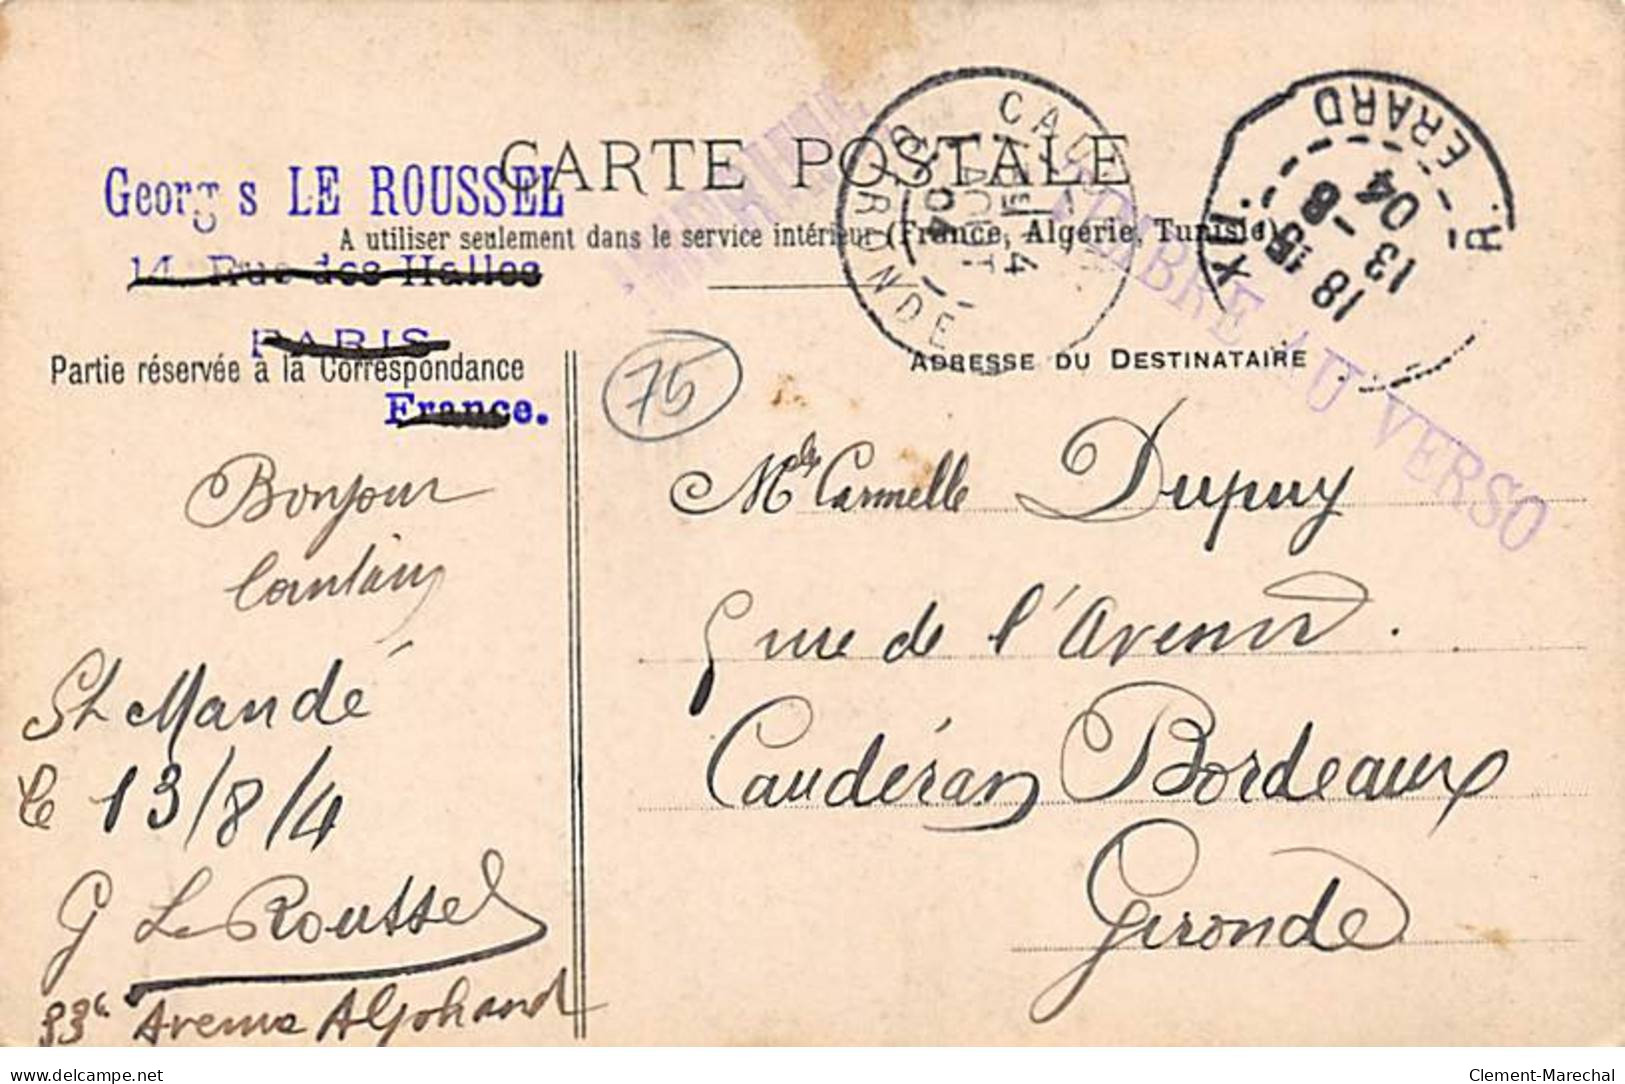 CARTE POSTALE
Georg s LE ROUSSEL
A utiliser seulement dans le service intérieur (France, Algérie, Tunisie)
14, Rue des Halles
PARIS
Partie réservée à la Correspondance
France.
ADRESSE DU DESTINATAIRE
IMPRIMÉ
TIMBRE AU VERSO
GIRONDE
AOUT
04
R. ERARD
XII.
18 15
13 - 8
04
75
Bonjour
St Mandé
le 13/8/4
G Le Roussel
33 Avenue Alphand
Mlle Carmelle Dupuy
5 rue de l'Avenir.
Caudéran Bordeaux
Gironde
delcampe.net
Clement-Marechal